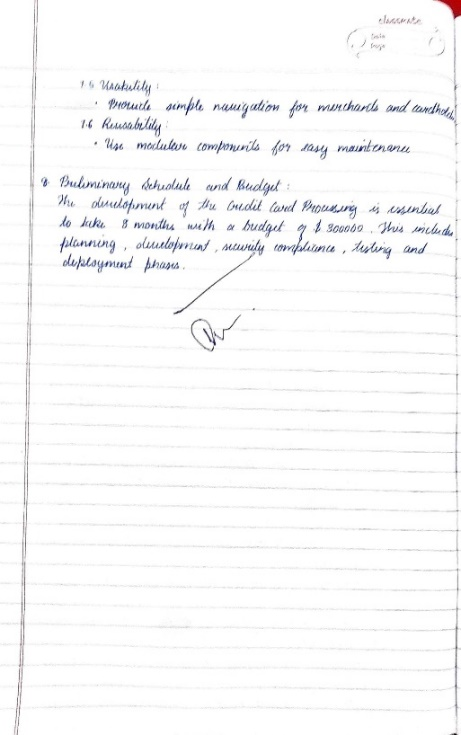 classmate
Date
Page
7.5 Usability :
• Provide simple navigation for merchants and cardholders
7.6 Reusability :
• Use modular components for easy maintenance
8 Preliminary Schedule and Budget :
The development of the Credit Card Processing is essential
to take 8 months with a budget of $ 300000. This includes
planning, development, security compliance, testing and
deployment phases.